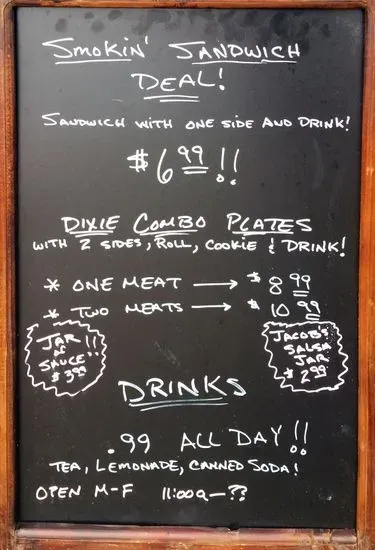 SMOKIN' SANDWICH
DEAL!
SANDWICH WITH ONE SIDE AND DRINK!
$6.99!!
DIXIE COMBO PLATES
WITH 2 SIDES, ROLL, COOKIE & DRINK!
* ONE MEAT → $8.99
* TWO MEATS → $10.99
JAR
OF
SAUCE!!
$3.99
JACOB'S
SALSA
JAR
$2.99
DRINKS
.99 ALL DAY!!
TEA, LEMONADE, CANNED SODA!
OPEN M-F 11:00a-??